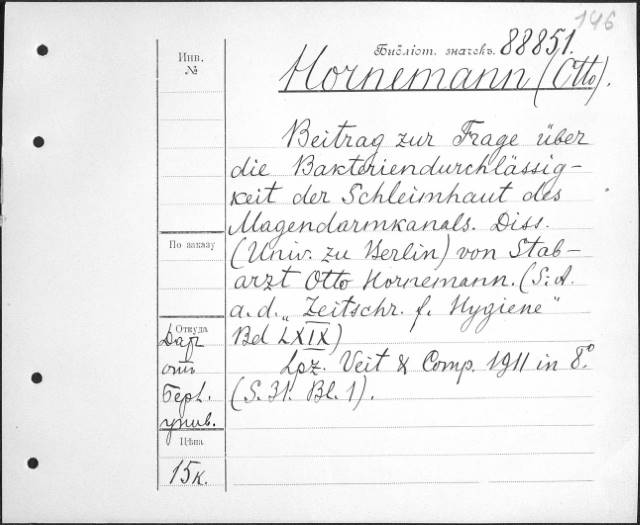 146
Библіот. значекъ. 88851.
Инв.
№
Hornemann (Otto).
Beitrag zur Frage über
die Bakteriendurchlässig-
keit der Schleimhaut des
Magendarmkanals. Diss.
(Univ. zu Berlin) von Stab-
arzt Otto Hornemann. (S.A.
a.d. „Zeitschr. f. Hygiene"
Bd LXIX)
Lpz. Veit & Comp. 1911 in 8°.
(S. 31. Bl. 1).
По заказу
Откуда
Даръ
отъ
Берл.
унив.
Цѣна
15к.